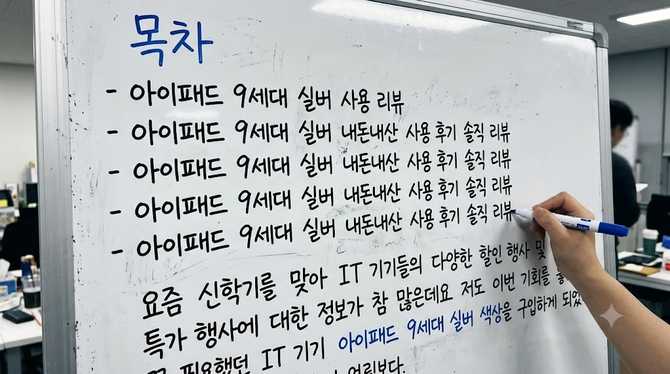 목차
- 아이패드 9세대 실버 사용 리뷰
- 아이패드 9세대 실버 내돈내산 사용 후기 솔직 리뷰
- 아이패드 9세대 실버 내돈내산 사용 후기 솔직 리뷰
- 아이패드 9세대 실버 내돈내산 사용 후기 솔직 리뷰
- 아이패드 9세대 실버 내돈내산 사용 후기 솔직 리뷰
요즘 신학기를 맞아 IT 기기들의 다양한 할인 행사 및
특가 행사에 대한 정보가 참 많은데요 저도 이번 기회를
필요했던 IT 기기 아이패드 9세대 실버 색상을 구입하게